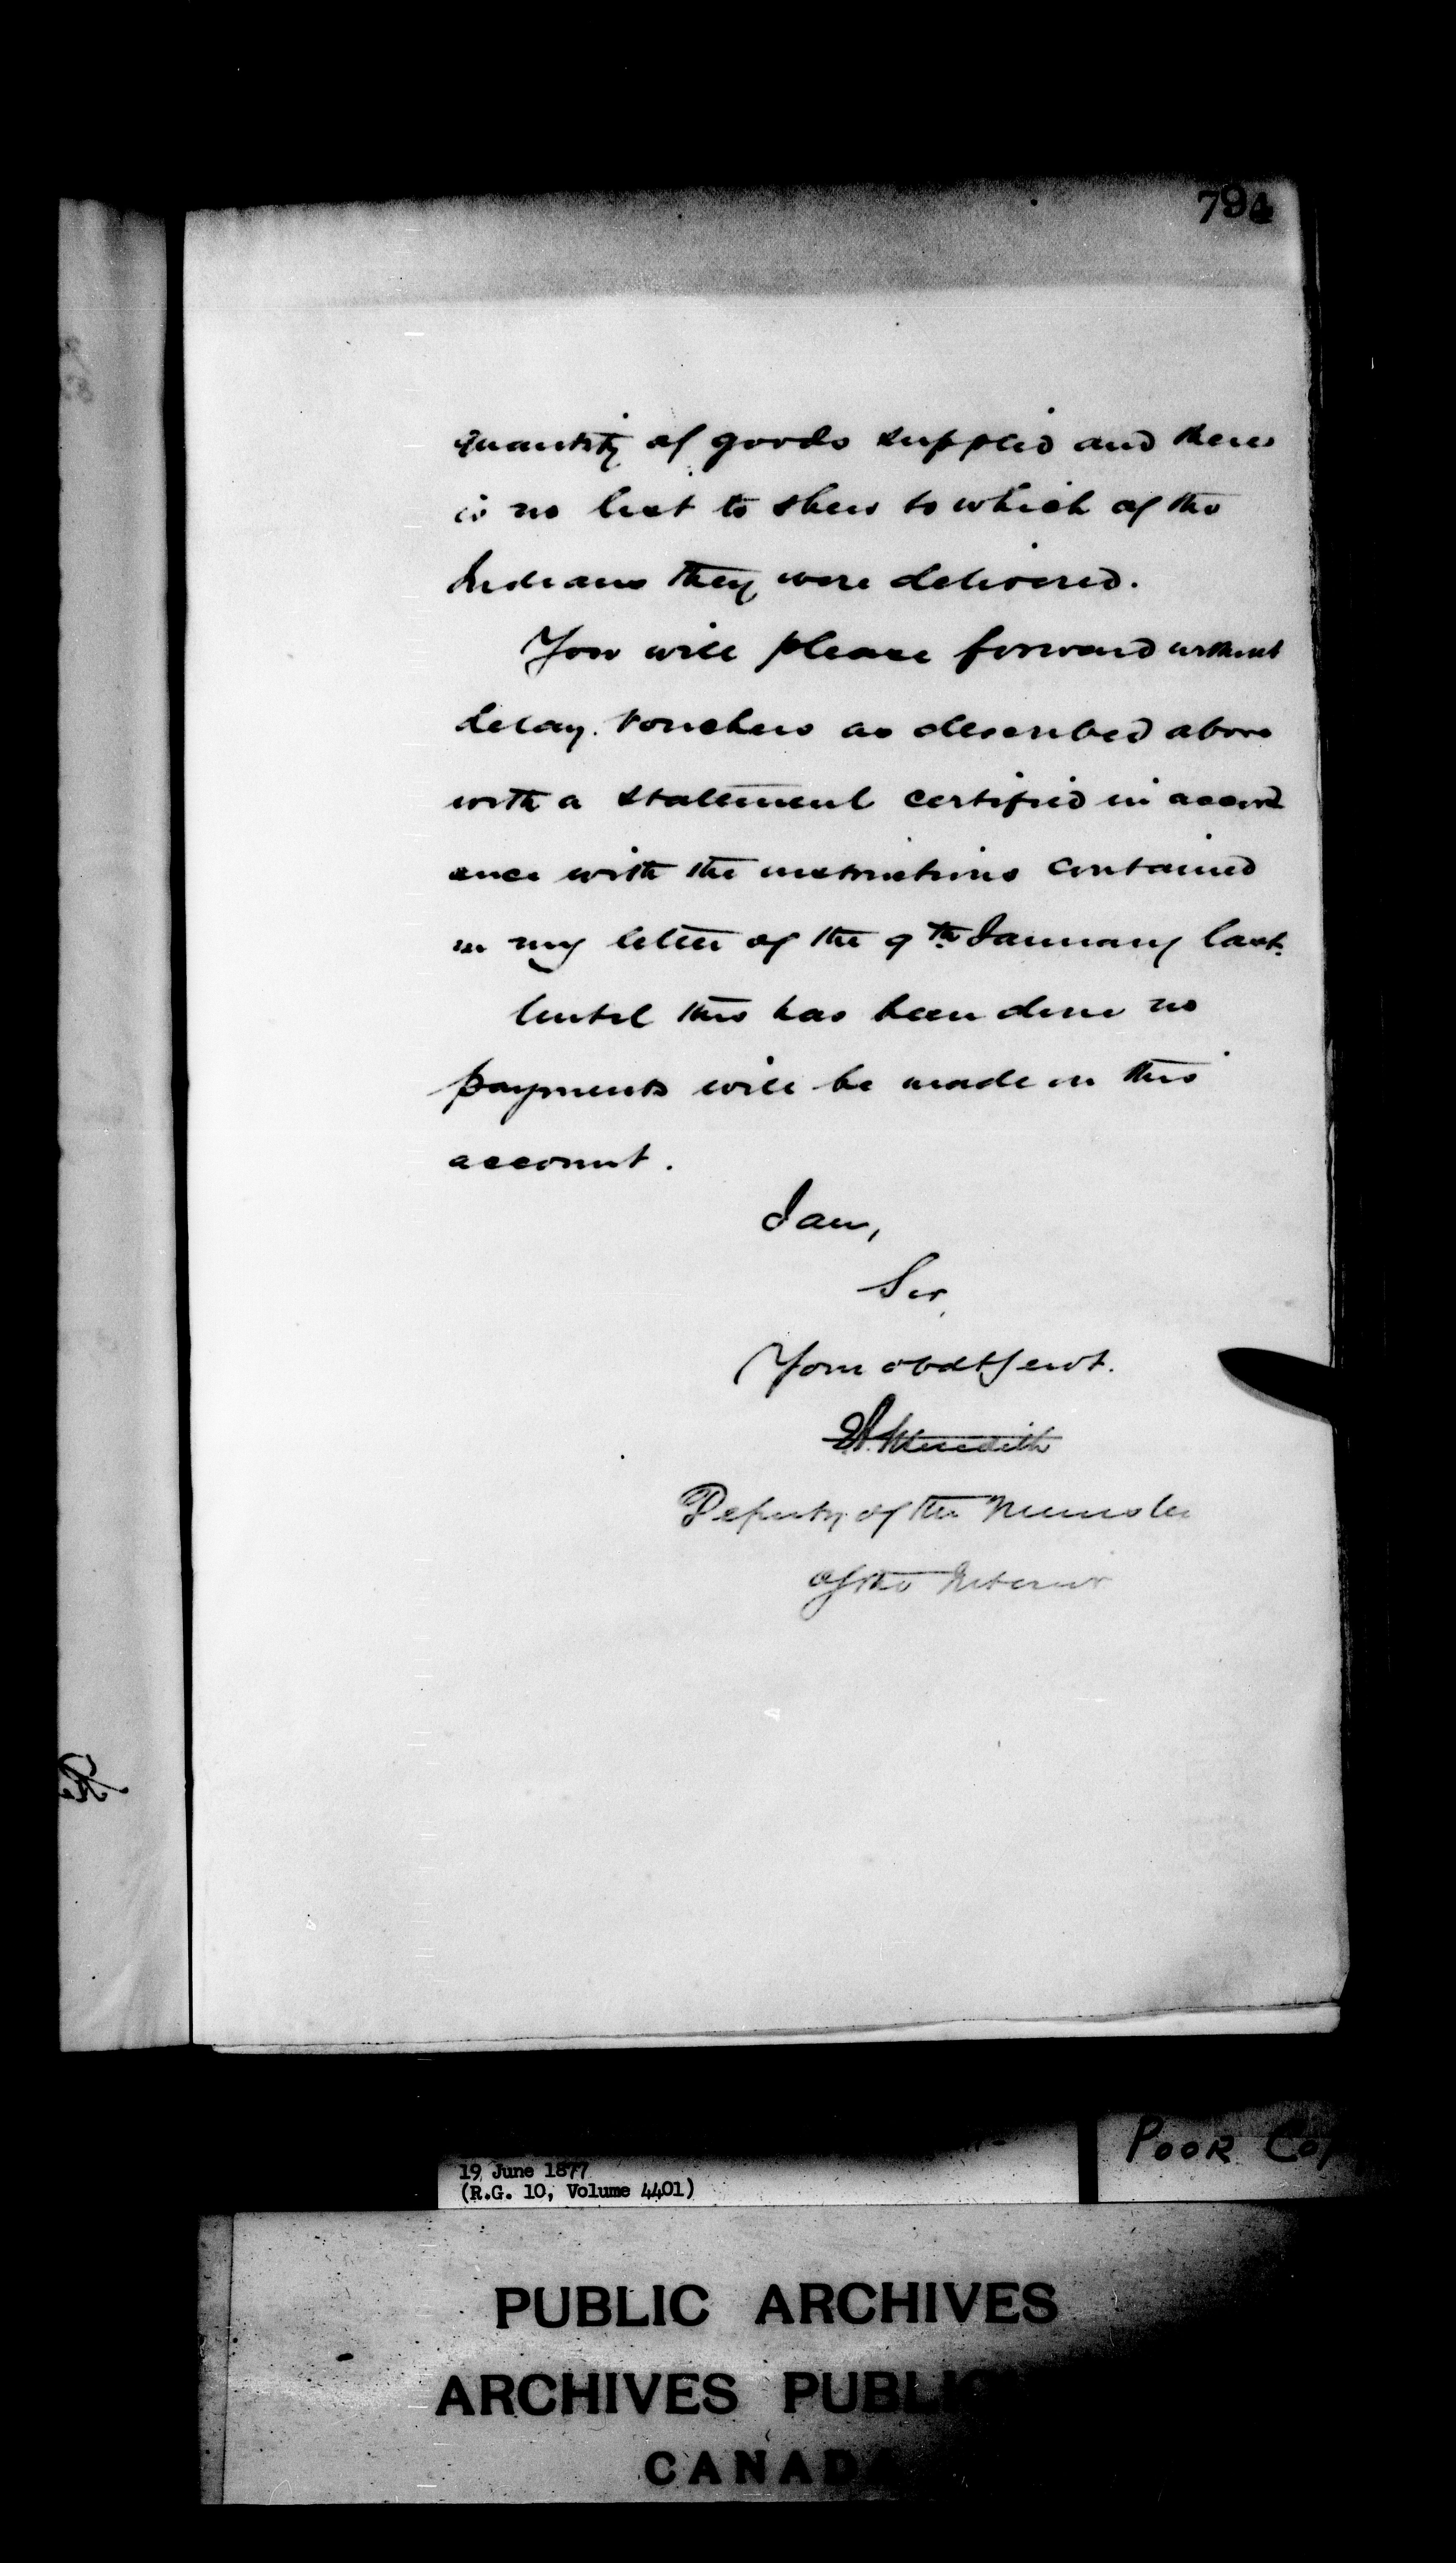 794
quantity of goods supplied and there
is no list to shew to which of the
Indians they were delivered.
You will please forward without
delay vouchers as described above
with a statement certified in accord
ance with the instructions contained
in my letter of the 9th January last.
Until this has been done no
payments will be made on this
account.
I am,
Sir,
Your obdt Servt.
Meredith
Deputy of the Minister
of the Interior
19 June 1877
(R.G. 10, Volume 4401)
POOR
PUBLIC ARCHIVES
ARCHIVES PUBLI
CANADA